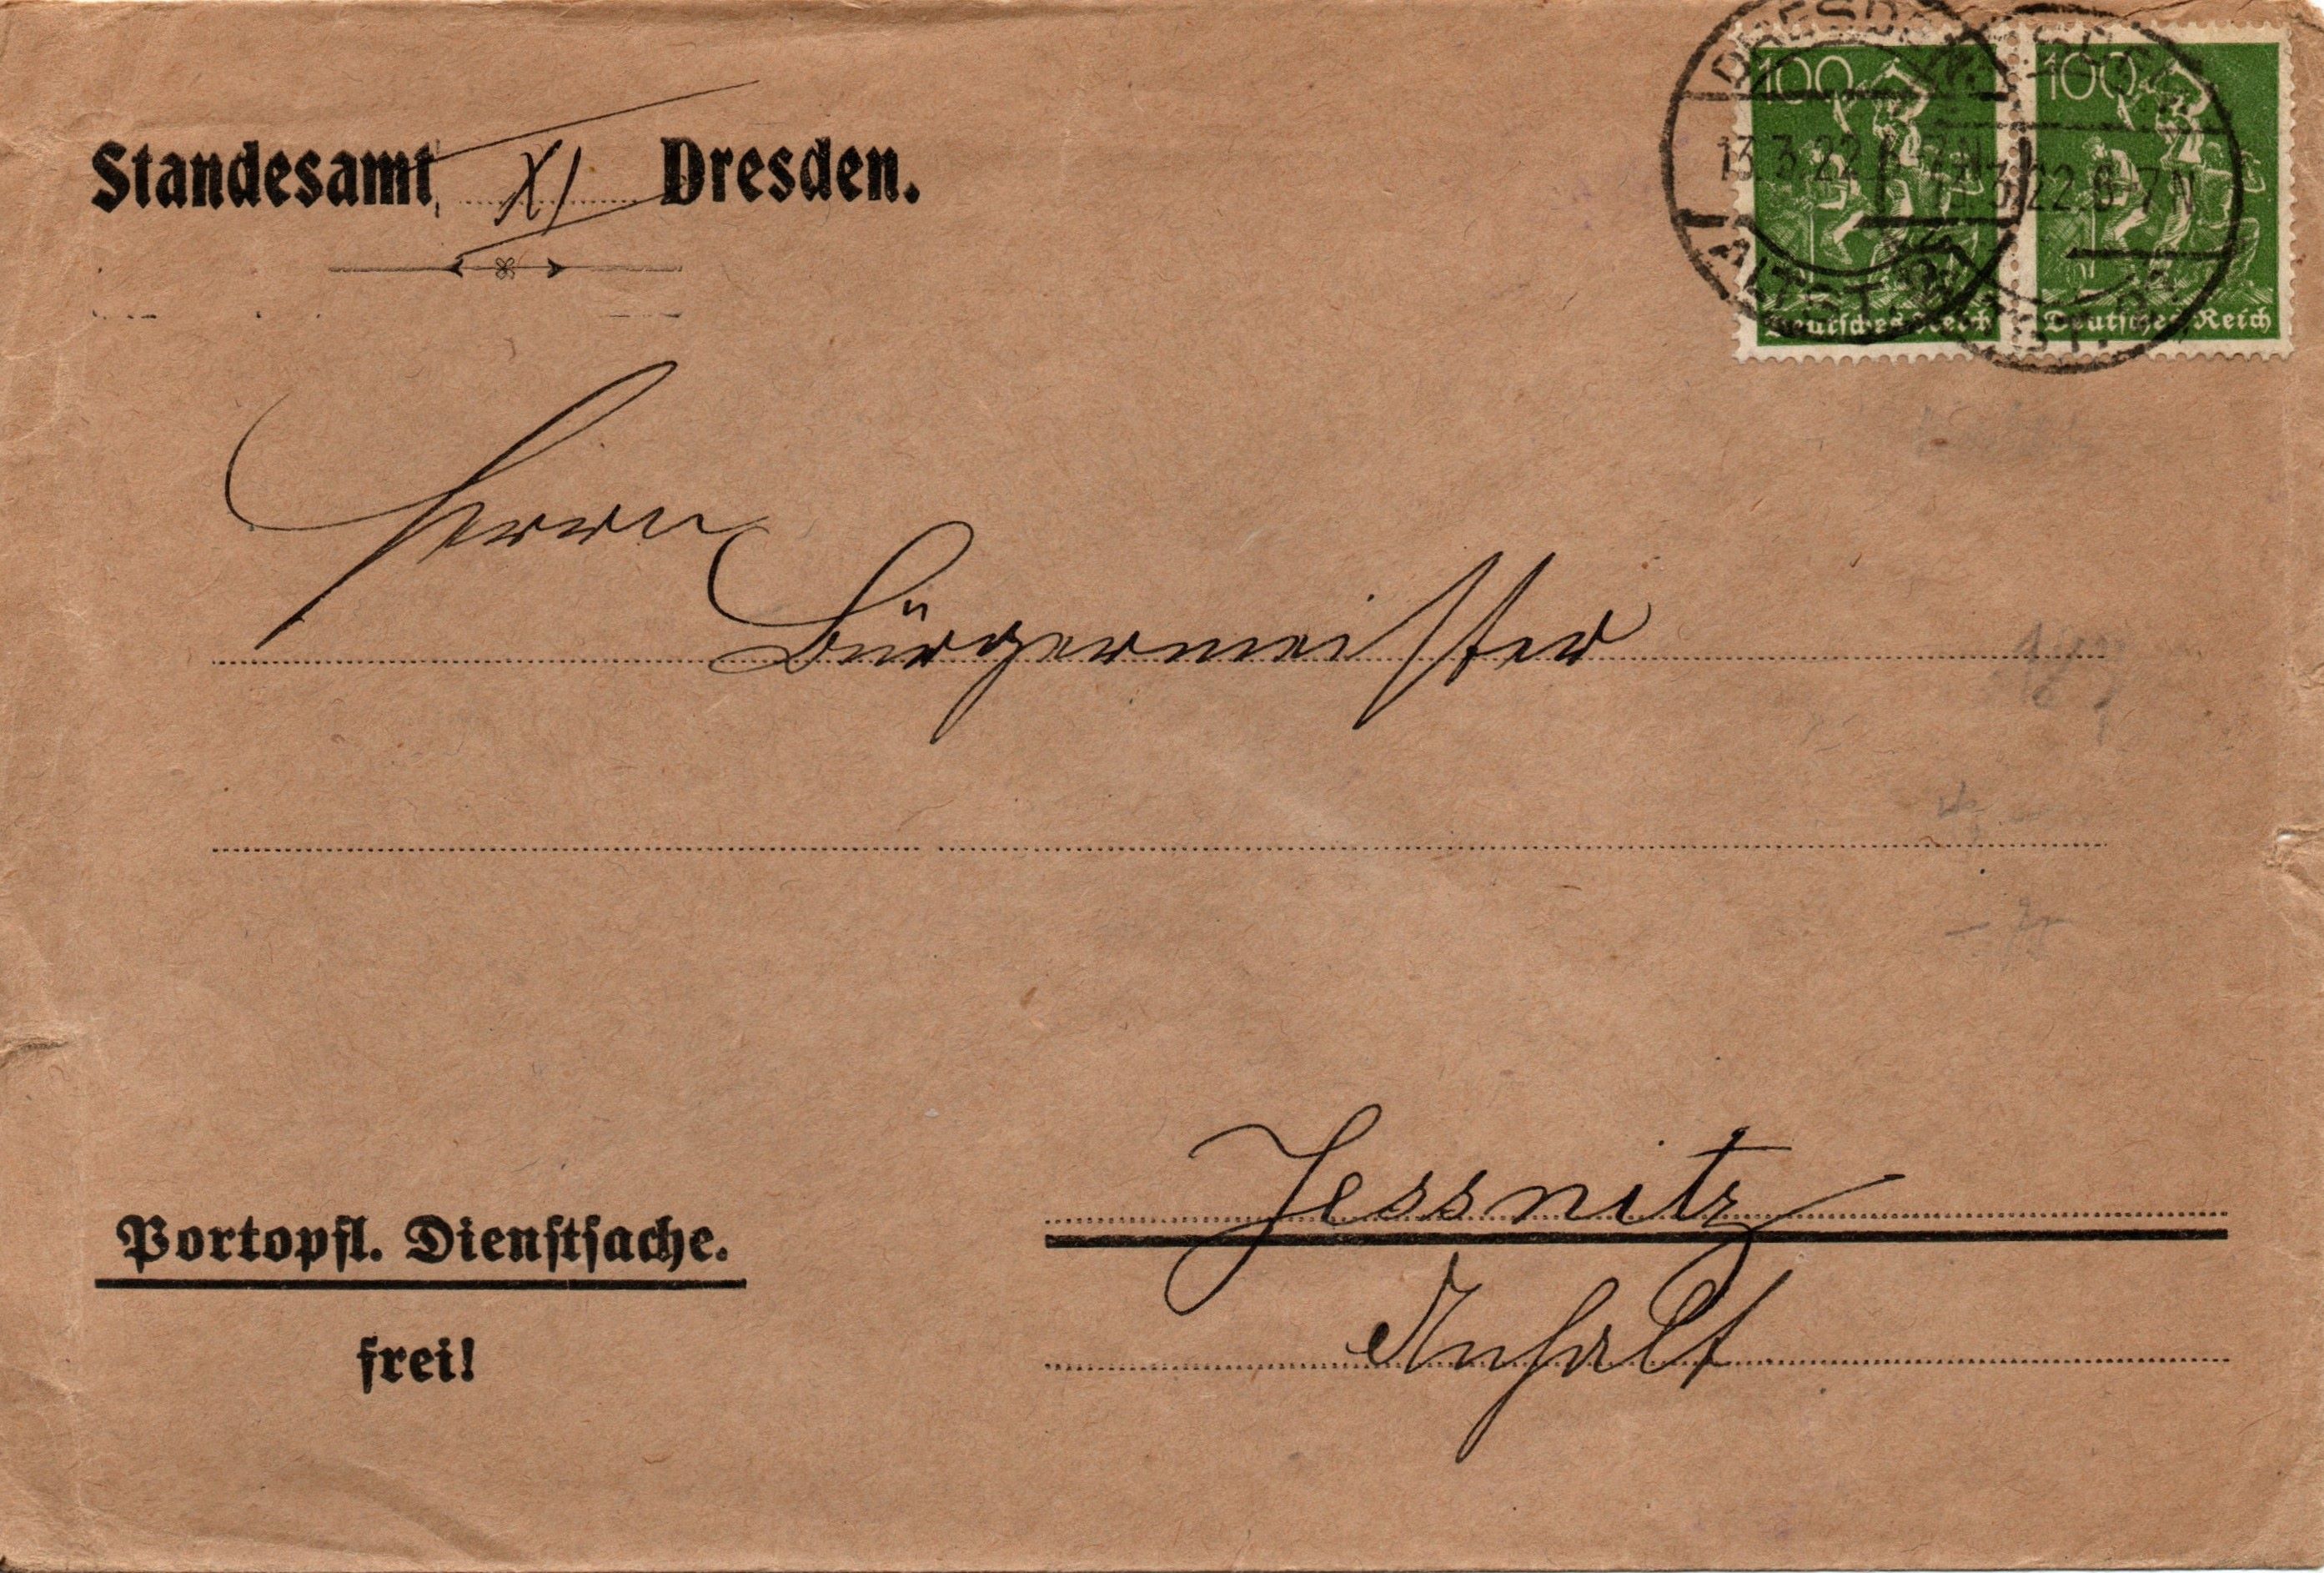 Standesamt XI Dresden.
100
100
DRESDEN
13.3.22.6-7N
13.3.22.6-7N
ALTST. 24
Deutsches Reich
Deutsches Reich
Herrn
Bürgermeister
Jessnitz
Anhalt
Portopfl. Dienstsache.
frei!